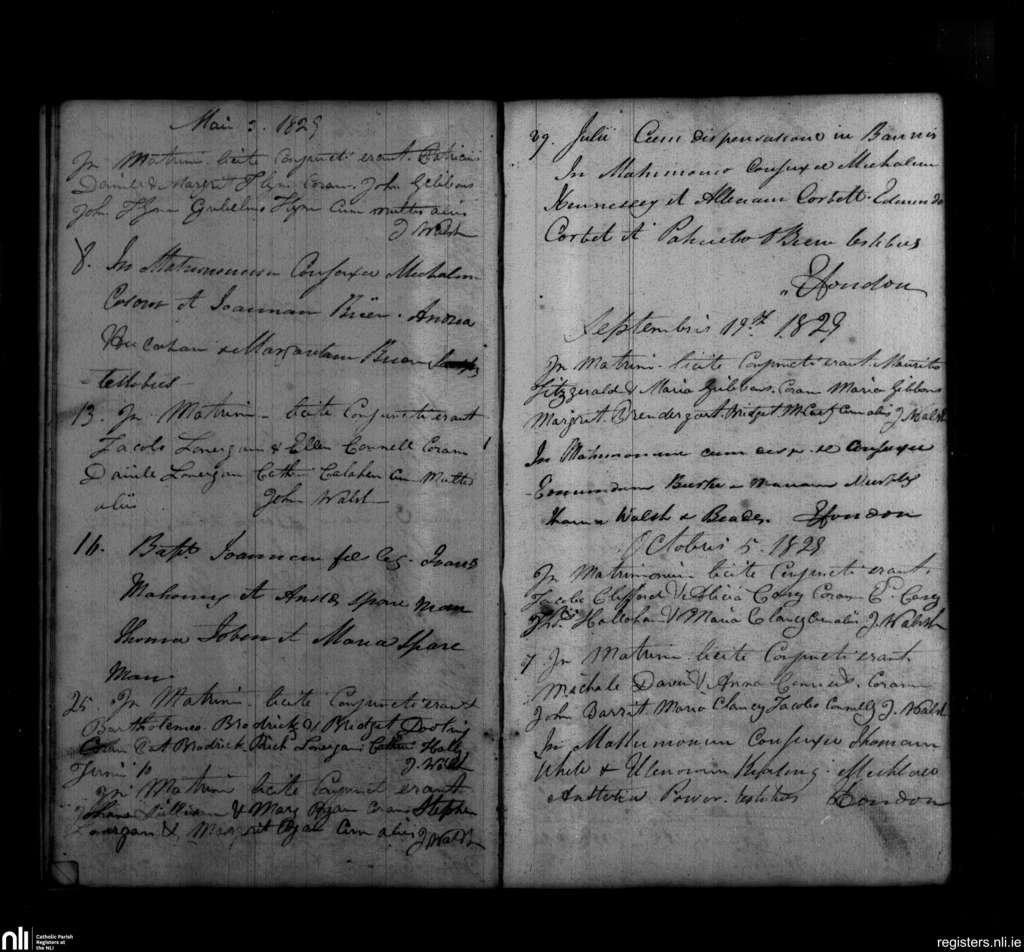 Maii 3. 1829
In Matrim. licite Conjuncti erant Patricii
Daniel & Margret Flyn Coram John Gibbons
John Flynn Gulielmo Flyn cum multis aliis
J Walsh
8. In Matrimonium Conjunxi Michalem
et Joannam Brien. Andrea
& Margaretam Brien
testibus
13. In Matrim- licite Conjuncti erant
Jacob Lonergan & Ellen Connell Coram
Daniele Lonergan Cath Calahan Cum Multis
aliis John Walsh
16. Bapt Joannem fil leg. Joans
Mahoney et Anst& Spare man
Thoma Tobin et Maria Spare
Man
25. In Matrim- licite Conjuncti erant
Bartholemeo Brodrick & Bridget
Coram Pat Brodrick Rich Lonergan Cathn Hally
J. Walsh
Junii 10
In Matrim licite Conjuncti erant
Sullivan & Mary Ryan Coram Stephen
Lonergan & Margrit Ryan Cum aliis J Walsh
29. Julii Cum dispensatione in Bannis
In Matrimonio Conjunxi Michalem
Hennessey et Alleciam Corbett. Edmundo
Corbet et Patricio O Brien testibus
Condon
Septembris 19th 1829
In Matrim- licite Conjuncti erant Mauritio
Fitzgerald & Maria Gibbons. Coram Maria Gibbons
Margret Prendergast. Bridget McCarty Cum aliis J Walsh
In Matrimonium cum disp. Conjunxi
Edmundum Burke Mariam Murphy
Thoma Walsh & Condon
Octobris 5. 1829
In Matrimonium- licite Conjuncti erant
Jacobo Clifford & Alicia Casey Coram E. Casey
Ths. Hallohan & Maria Clancy Cum aliis J. Walsh
7 In Matrim- licite Conjuncti erant
Michale David & Anna Coram
John Barret Maria Clancy Jacobo Connelly J. Walsh
In Matrimonium Conjunxi Thomam
White & Kealing. Michaeo
Power. testibus Condon
nli
Catholic Parish
Registers at
the NLI
registers.nli.ie